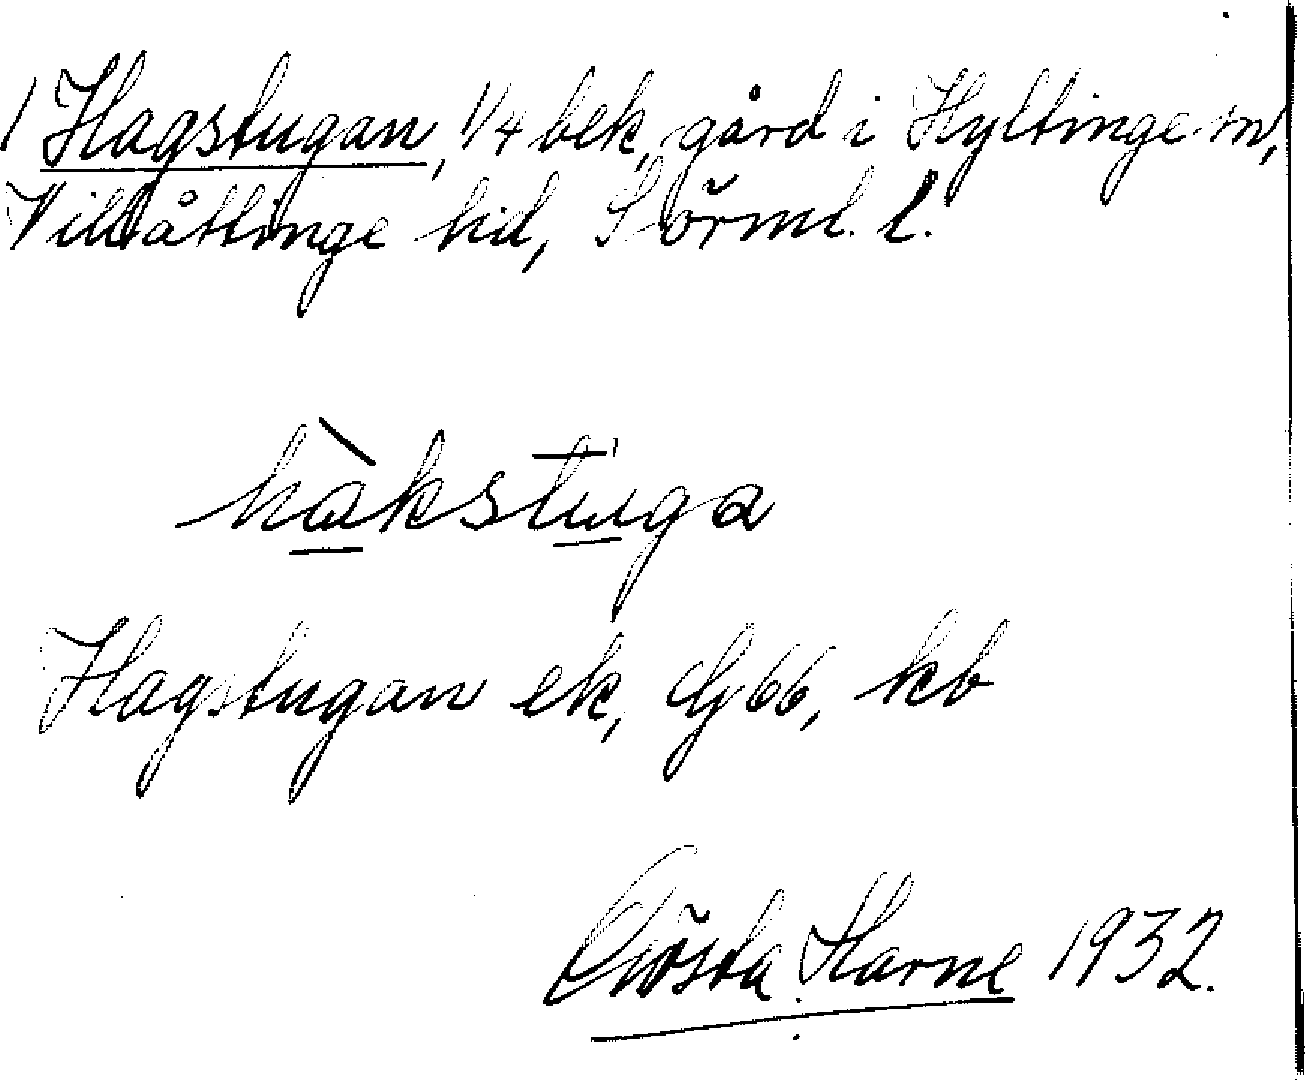 1 Hagstugan, 1/4 bek, gård i Hyltinge sn,
Villåttinge hd, Sörml. l.
hàkstuga
Hagstugan ek, Gj 66, kb
Gösta Harne 1932.